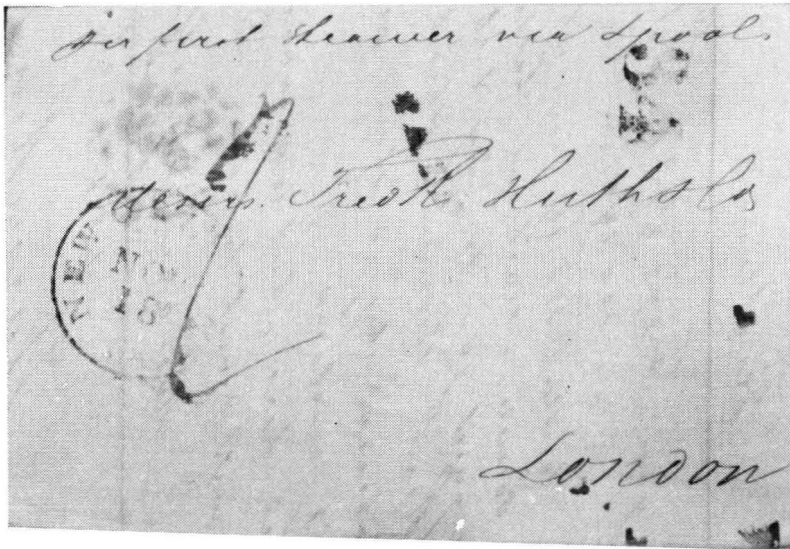 per first steamer via Lpool
Messrs. Fredk. Huth & Co
NEW
NOV
18
London